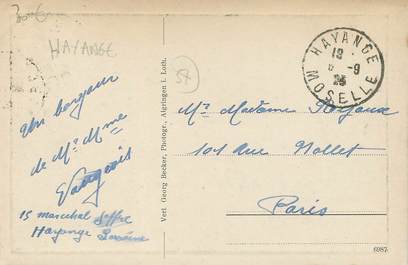 HAYANGE
57
HAYANGE
18
-9
25
MOSELLE
Un bonjour
de Mr Mme
15 marechal Joffre
Hayange Lorraine
Verl. Georg Becker, Photogr., Algringen i. Loth.
Mr Madame
101 Rue Nollet
Paris
6987